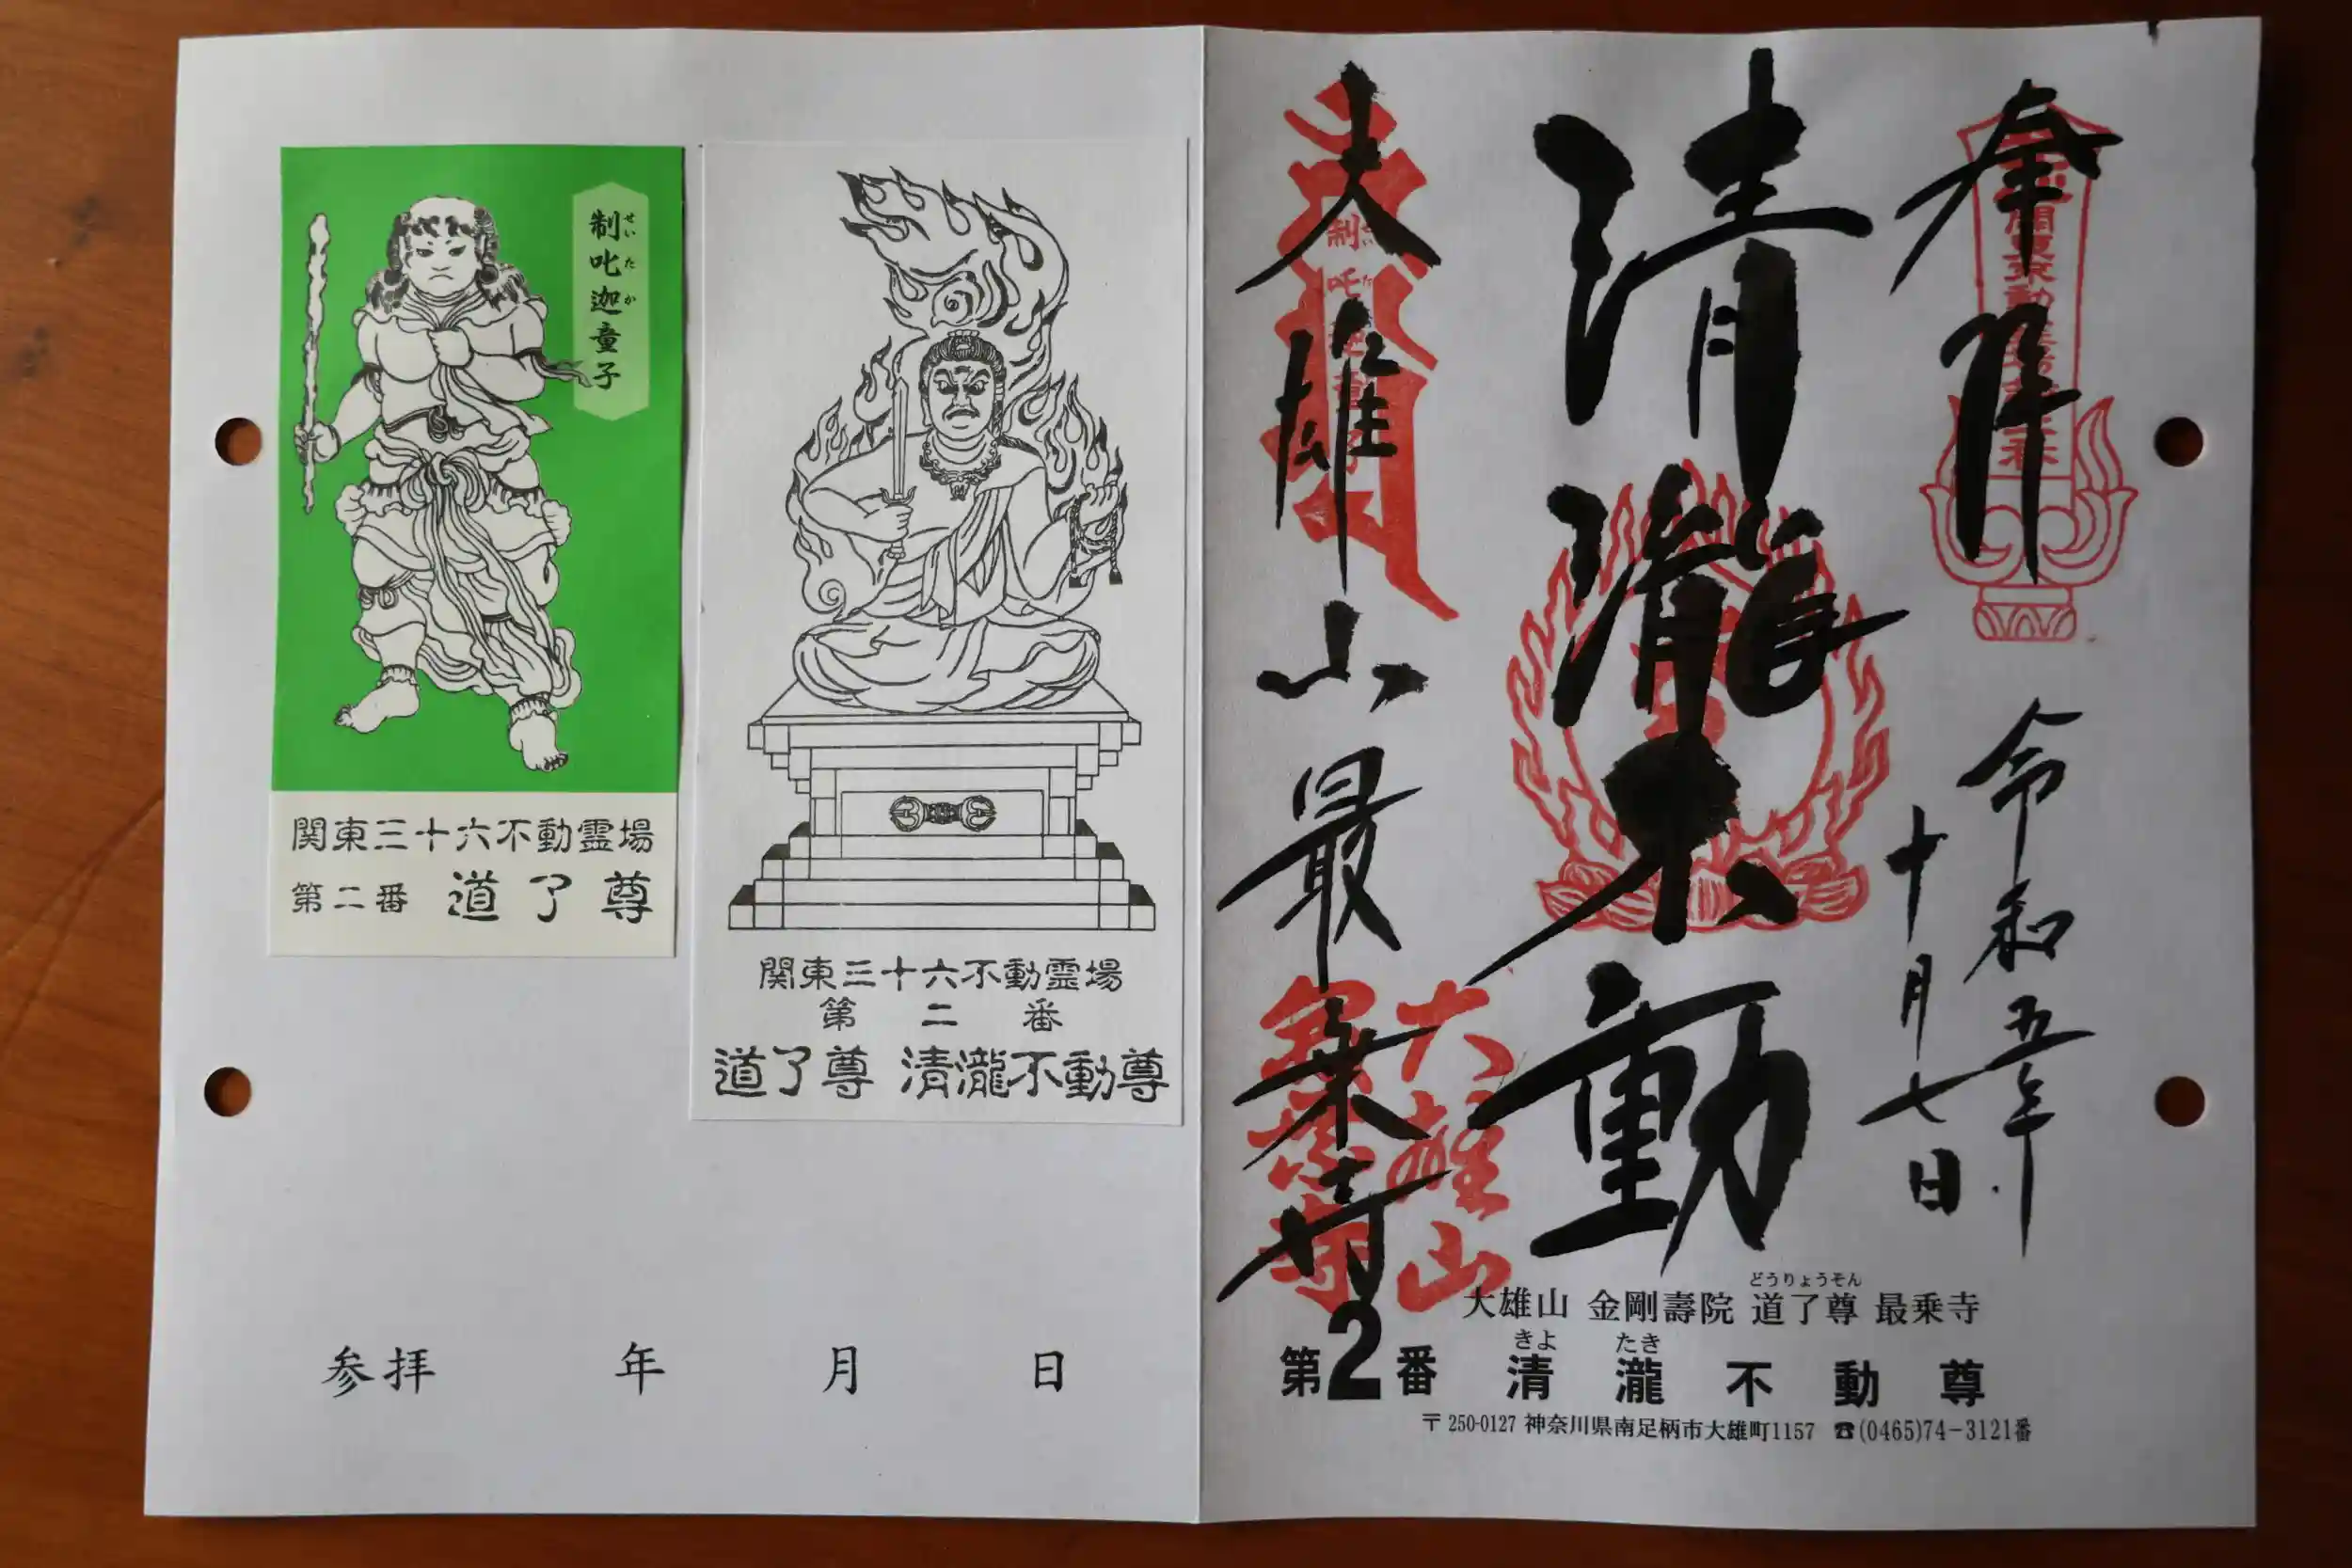 制叱迦童子
せいたか
関東三十六不動霊場
第二番 道了尊
関東三十六不動霊場
第二番
道了尊 清瀧不動尊
参拝 年 月 日
奉拝
令和五年
十月七日
清瀧不動
大雄山最乗寺
大雄山
どうりょうそん
大雄山 金剛壽院 道了尊 最乗寺
きよ たき
第2番 清瀧不動尊
〒250-0127 神奈川県南足柄市大雄町1157 ☎(0465)74-3121番